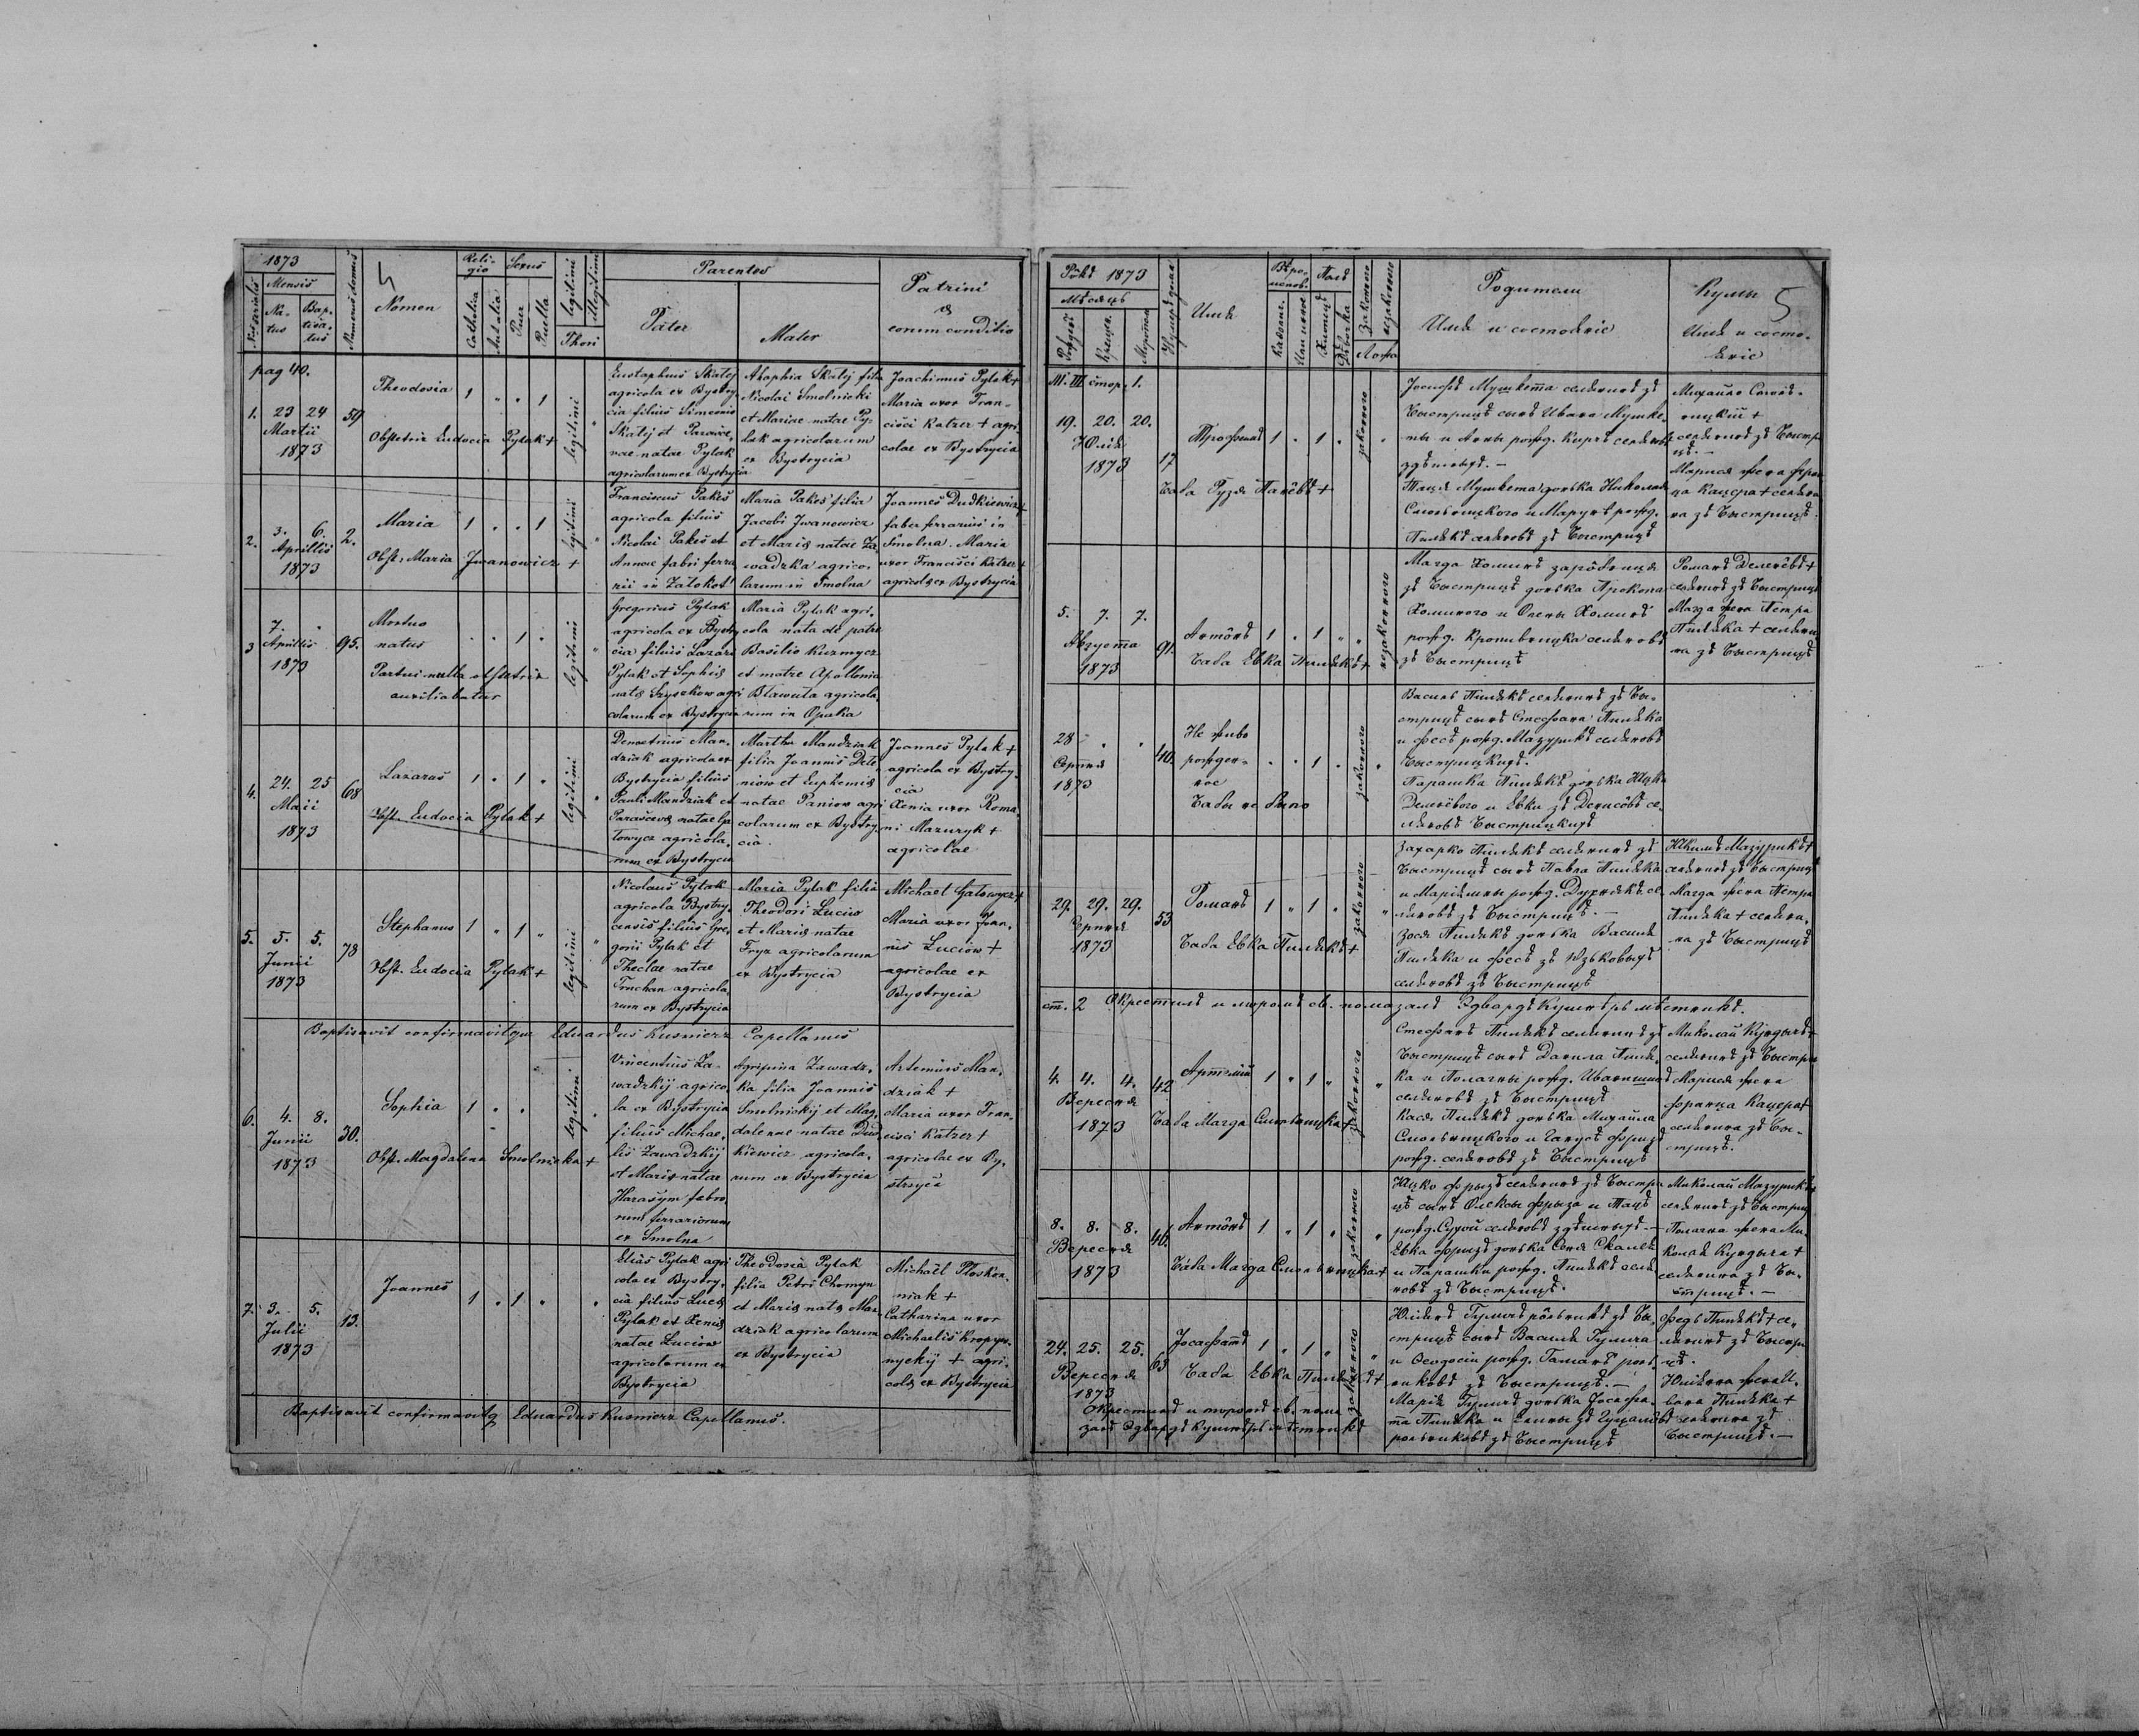 1873
Nrus serialis
Mensis
Natus
Baptisatus
Numerus domus
4
Nomen
Religio
Catholica
Aut alia
Sexus
Puer
Puella
legitimi
illegitimi
Thori
Parentes
Pater
Mater
Patrini
&
eorum conditio
pag 40.
1. 23 24
Martii
1873
59
Theodosia 1 " " 1
Obstetrix Eudocia Pylak +
legitimi
Eustaphius Skalij
agricola ex Bystry-
cia filius Simeonis
Skalij et Parasce-
vae natae Pylak
agricolarum ex Bystrycia
Ahaphia Skalij filia
Nicolai Smolnicki
et Mariae natae Py-
lak agricolarum
ex Bystrycia
Joachimus Pylak +
Maria uxor Fran-
cisci Katzer + agri-
colae ex Bystrycia
2. 3. 6.
Aprillis
1873
2.
Maria 1 " " 1
Obst. Maria Jwanowicz +
legitimi
Franciscus Pakes
agricola filius
Nicolai Pakes et
Annae fabri ferra
rii in Zalokot'
Maria Pakes filia
Jacobi Jwanowicz
et Mariae natae Za-
wadzka agrico-
larum in Smolna
Joannes Dudkiewicz +
faber ferrarius in
Smolna. Maria
uxor Francisci Katzer +
agricolae ex Bystrycia
3 7. "
Aprillis
1873
95.
Mortuo
natus " " 1 "
Partui nulla obstetrix
auxiliabatur
legitimi
Gregorius Pylak
agricola ex Bystry
cia filius Lazari
Pylak et Sophiae
natae Szyszkow agri
colarum ex Bystrycia
Maria Pylak agri-
cola nata de patre
Basilio Kuzmycz
et matre Apollonia
Blawuta agricola-
rum in Opaka
4. 24. 25
Maii
1873
68
Lazarus 1 " 1 "
Obst. Eudocia Pylak +
legitimi
Demetrius Man-
dziak agricola ex
Bystrycia filius
Pauli Mandziak et
Parascevae natae Ga
towycz agricola-
rum ex Bystrycia
Martha Mandziak
filia Joannis Dele-
niow et Euphemiae
natae Paniow agri
colarum ex Bystry-
cia.
Joannes Pylak +
agricola ex Bystry-
cia
Xenia uxor Roma-
ni Mazuryk +
agricolae
5. 5. 5.
Junii
1873
78
Stephanus 1 " 1 "
Obst. Eudocia Pylak +
legitimi
Nicolaus Pylak
agricola Bystry-
censis filius Gre-
gorii Pylak et
Theclae natae
Truchan agricola-
rum ex Bystrycia
Maria Pylak filia
Theodori Luciw
et Mariae natae
Fryz agricolarum
ex Bystrycia
Michael Gatowycz +
Maria uxor Joan-
nis Luciow +
agricolae ex
Bystrycia
Baptisavit confirmavitque Eduardus Kusnierz Capellanus
6. 4. 8.
Junii
1873
30.
Sophia 1 " "
Obst. Magdalena Smolnicka +
legitimi
Vincentius Za-
wadzkij agrico-
la ex Bystrycia
filius Michae-
lis Zawadzkij
et Mariae natae
Harasym fabro-
rum ferrariorum
ex Smolna
Agripina Zawadz-
ka filia Joannis
Smolnickij et Mag-
dalenae natae Dud
kiewicz agricola-
rum ex Bystrycia
Artemius Man-
dziak +
Maria uxor Fran-
cisci Katzer +
agricolae ex By-
strycia
7. 3. 5.
Julii
1873
13.
Joannes 1 " 1 "
Elias Pylak agri
cola ex Bystry-
cia filius Lucae
Pylak et Xeniae
natae Luciow
agricolarum ex
Bystrycia
Theodosia Pylak
filia Petri Chomyn
et Mariae natae Man-
dziak agricolarum
ex Bystrycia
Michael Ploskon-
niak +
Catharina uxor
Michaelis Kropyw-
nyckij + agri-
colae ex Bystrycia
Baptisavit confirmavitq Eduardus Kusnierz Capellanus.
Рôкъ 1873
Мѣсяць
Имя
Полъ
Хлопецъ
Дѣвочка
законного
незаконного
Ложа
Родители
Имя и состоянiе
Кумы
5
Имя и состо-
янiе
III. стор. 1.
19. 20. 20.
Юлія
1873
17
Трофимъ 1 " 1 "
Баба Рузя Панёвъ +
законного
Іосифъ Мушкета селянинъ зъ
Быстрицѣ сынъ Ивана Мушке-
ты и Анны рожд. Кирчъ селянов
здѣшныхъ. —
Таця Мушкета донька Николая
Смольницкого и Марунѣ рожд.
Пилякъ селяновъ зъ Быстрицѣ
Михайло Смоль-
ницкій +
селянинъ зъ Быстри
цѣ. —
Марися жена Фран
ца Кацера + селянка
зъ Быстрицѣ
5. 7. 7.
Августа
1873
91.
Антônъ 1 " 1 " "
Баба Евка Пилякъ +
незаконного
Магда Хоминъ зарôбниця
зъ Быстрицѣ донька Прокопа
Хоминого и Олены Хоминъ
рожд. Кропивницка селяновъ
зъ Быстрицѣ
Романъ Делянёвъ +
селянинъ зъ Быстрицѣ
Магда жена Петра
Пиляка + селянка
зъ Быстрицѣ
28 " "
Серпня
1873
40.
Не живо
рожден-
ное " " 1 "
Бабы не было
законного
Василь Пилякъ селянинъ зъ Бы-
стрицѣ сынъ Стефана Пиляка
и Фесѣ рожд. Мазурикъ селяновъ
Быстрицкихъ.
Парашка Пилякъ донька Яцка
Деленёвого и Евки зъ Денисôвъ се-
ляновъ Быстрицкихъ
29. 29. 29.
Серпня
1873
53
Романъ 1 " 1 "
Баба Евка Пилякъ +
законного
Захарко Пилякъ селянинъ зъ
Быстрицѣ сынъ Павла Пиляка
и Маріянны рожд. Духнякъ се-
ляновъ зъ Быстрицѣ. —
Зося Пилякъ донька Василя
Пиляка и Фесѣ зъ Яцьковыхъ
селяновъ зъ Быстрицѣ
Якимъ Мазурикъ +
селянинъ зъ Быстрицѣ
Магда жена Петра
Пиляка + селянка
зъ Быстрицѣ
ст. 2 Окрестилъ и муромъ св. помазалъ Эдвардъ Кушнѣръ мѣстникъ.
4. 4. 4.
Вересня
1873
42
Артемій 1 " 1 "
Баба Магда Смольницка +
законного
Стефанъ Пилякъ селянинъ зъ
Быстрицѣ сынъ Данила Пиля-
ка и Полагны рожд. Иванишинъ
селяновъ зъ Быстрицѣ
Кася Пилякъ донька Михайла
Смольницкого и Гапусѣ Фризъ
рожд. селяновъ зъ Быстрицѣ
Миколай Кундыла +
селянинъ зъ Быстри
Марися жена
Франца Кацера +
селянка зъ Бы-
стрицѣ.
8. 8. 8.
Вересня
1873
46.
Антônъ 1 " 1 "
Баба Магда Смольницка +
законного
Яцко Фрызъ селянинъ зъ Быстри
цѣ сынъ Олексы Фрыза и Тацѣ
рожд. Сухой селяновъ здѣшныхъ. —
Евка Фризъ донька Сеня Скалѣя
и Парашки рожд. Пилякъ селя-
новъ зъ Быстрицѣ.
Миколай Мазурикъ +
селянинъ зъ Быстриц
Полагна жена Ми-
колая Кундыла +
селянка зъ Бы-
стрицѣ. —
24. 25. 25.
Вересня
1873
63
Іосафатъ 1 " 1 "
Баба Евка Пилякъ +
законного
Окрестилъ и муромъ св. пома
залъ Эдвардъ Кушнѣръ мѣстникъ
Юліянъ Гулычъ рôльникъ зъ Бы-
стрицѣ сынъ Василя Гулича
и Феодосіи рожд. Гамаръ роль-
никовъ зъ Быстрицѣ. —
Марія Гуличъ донька Іосафа-
та Пиляка и Елины зъ Гуцалёвъ
рольниковъ зъ Быстрицѣ
Федь Пилякъ + се-
лянинъ зъ Быстри
цѣ.
Юліянна жена И-
вана Пиляка +
селянка зъ
Быстрицѣ. —